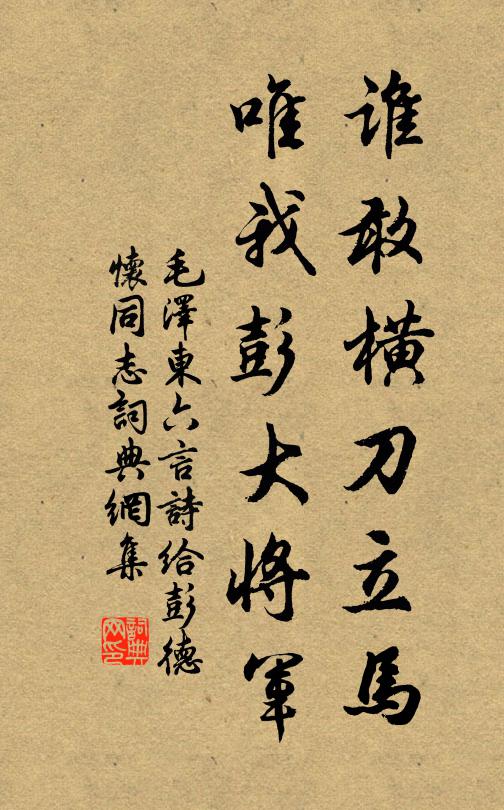 谁敢橫刀立馬
唯我彭大將軍
毛澤東六言詩給彭德
懷同志詞典網集
詞典
网印